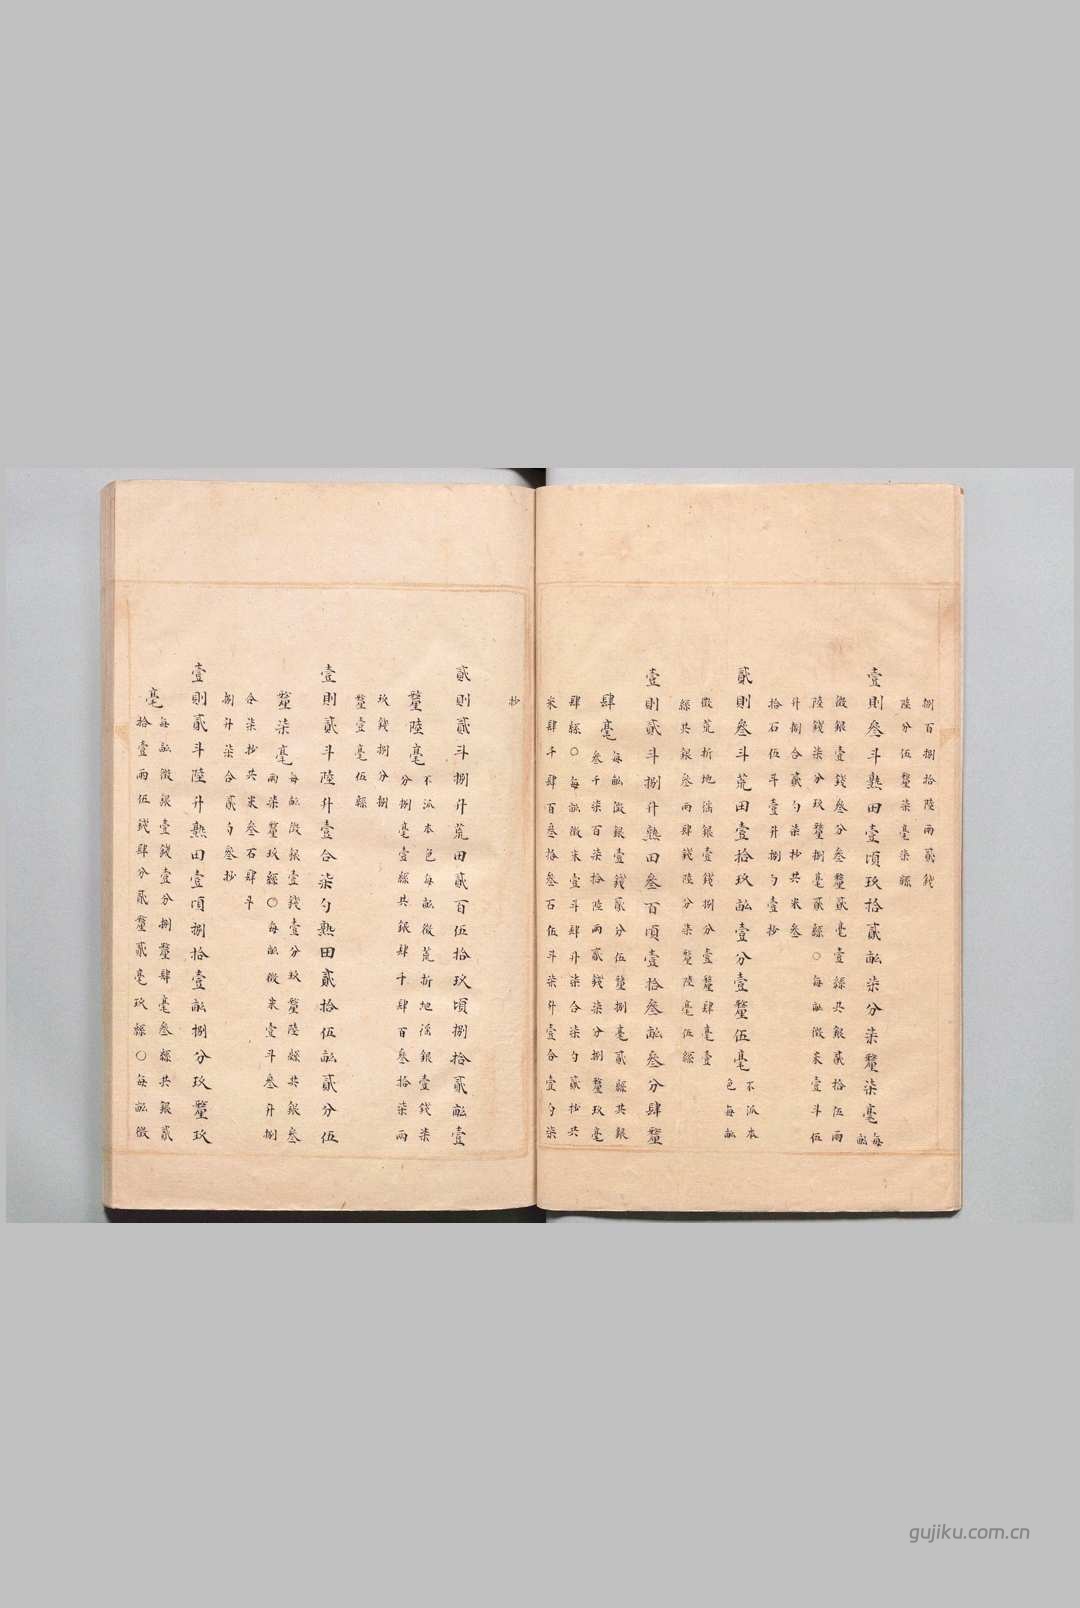 捌百捌拾陸兩貳錢
陸分伍釐柒毫柒縣
壹則叁斗熟田壹頃玖拾貳畝柒分柒釐柒毫每畝
徵銀壹錢叁分叁釐貳毫壹縣共銀貳拾伍兩
陸錢柒分玖釐捌毫貳縣○每畝徵米壹斗伍
升捌合貳勺柒抄共米叁
拾石伍斗壹升捌勺壹抄
貳則叁斗荒田壹拾玖畝壹分壹釐伍毫不派本色每畝
徵荒折地徭銀壹錢捌分壹釐肆毫壹
縣共銀叁兩肆錢陸分柒釐陸毫伍縣
壹則貳斗捌升熟田叁百頃壹拾叁畝叁分肆釐
肆毫每畝徵銀壹錢貳分伍釐捌毫貳縣共銀
叁千柒百柒拾陸兩貳錢柒分捌釐玖毫
肆縣○每畝徵米壹斗肆升柒合柒勺貳抄共
米肆千肆百叁拾叁石伍斗柒升壹合壹勺柒
抄
貳則貳斗捌升荒田貳百伍拾玖頃捌拾貳畝壹
釐陸毫不派本色每畝徵荒折地徭銀壹錢柒
分捌毫壹縣共銀肆千肆百叁拾柒兩
玖錢捌分捌
釐壹毫伍縣
壹則貳斗陸升壹合柒勺熟田貳拾伍畝貳分伍
釐柒毫每畝徵銀壹錢壹分玖釐陸縣共銀叁
兩柒釐玖縣○每畝徵米壹斗叁升捌
合柒抄共米叁石肆斗
捌升柒合貳勺叁抄
壹則貳斗陸升熟田壹頃捌拾壹畝捌分玖釐玖
毫每畝徵銀壹錢壹分捌釐肆毫叁縣共銀貳
拾壹兩伍錢肆分貳釐貳毫玖縣○每畝徵
gujiku.com.cn